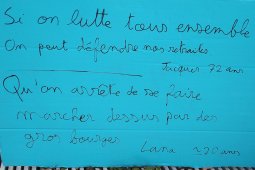 Si on lutte tous ensemble
On peut défendre nos retraites
Jacques 72 ans
Qu'on arrête de se faire
marcher dessus par des
gros bourges
Lana ~20 ans